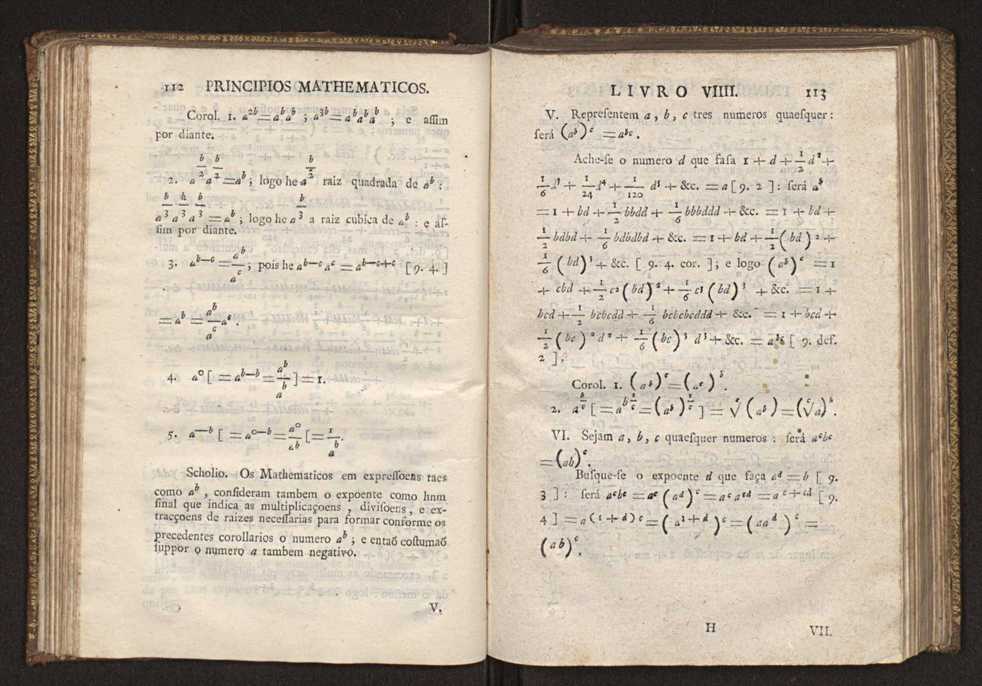 112 PRINCIPIOS MATHEMATICOS.
Corol. 1. a^{2b}=a^b a^b ; a^{3b}=a^b a^b a^b ; e aſſim
por diante.
2. a^{b/2} a^{b/2}=a^b ; logo he a^{b/2} raiz quadrada de a^b :
a^{b/3} a^{b/3} a^{b/3} = a^b ; logo he a^{b/3} a raiz cubica de a^b : e aſ-
ſim por diante.
3. a^{b—c}=a^b/a^c ; pois he a^{b—c} a^c = a^{b—c+c} [ 9. 4. ]
= a^b = a^b/a^c a^c.
4. a^0 [ = a^{b—b} = a^b/a^b ] = 1.
5. a^{—b} [ = a^{0—b} = a^0/a^b [ = 1/a^b.
Scholio. Os Mathematicos em expreſſoens taes
como a^b , conſideram tambem o expoente como hum
ſinal que indica as multiplicaçoens , diviſoens, e ex-
tracçoens de raizes neceſſarias para formar conforme os
precedentes corollarios o numero a^b ; e entaõ coſtumaõ
ſuppor o numero a tambem negativo.
V.
LIVRO VIIII. 113
V. Repreſentem a, b, c tres numeros quaeſquer :
ſerá (a^b)^c = a^{bc}.
Ache-ſe o numero d que faſa 1 + d + 1/2 d² +
1/6 d³ + 1/24 d⁴ + 1/120 d⁵ + &c. = a [ 9. 2 ] : ſerá a^b
= 1 + bd + 1/2 bbdd + 1/6 bbbddd + &c. = 1 + bd +
1/2 bdbd + 1/6 bdbdbd + &c. = 1 + bd + 1/2 (bd)² +
1/6 (bd)³ + &c. [ 9. 4. cor. ] ; e logo (a^b)^c = 1
+ cbd + 1/2 c² (bd)² + 1/6 c³ (bd)³ + &c. = 1 +
bcd + 1/2 bcbcdd + 1/6 bcbcbcddd + &c. = 1 + bcd +
1/2 (bc)² d² + 1/6 (bc)³ d³ + &c. = a^{bc} [ 9. def.
2 ].
Corol. 1. (a^b)^c = (a^c)^b.
2. a^{b/c} [ = a^{b 1/c} = (a^b)^{1/c} ] = ᶜ√(a^b) = (ᶜ√a)^b.
VI. Sejam a, b, c quaeſquer numeros : ſerá a^c b^c
= (ab)^c.
Buſque-ſe o expoente d que faça a^d = b [ 9.
3 ] : ſerá a^c b^c = a^c (a^d)^c = a^c a^{cd} = a^{c + cd} [ 9.
4 ] = a^{(1 + d) c} = (a^{1 + d})^c = (aa^d)^c =
(ab)^c.
H VII.